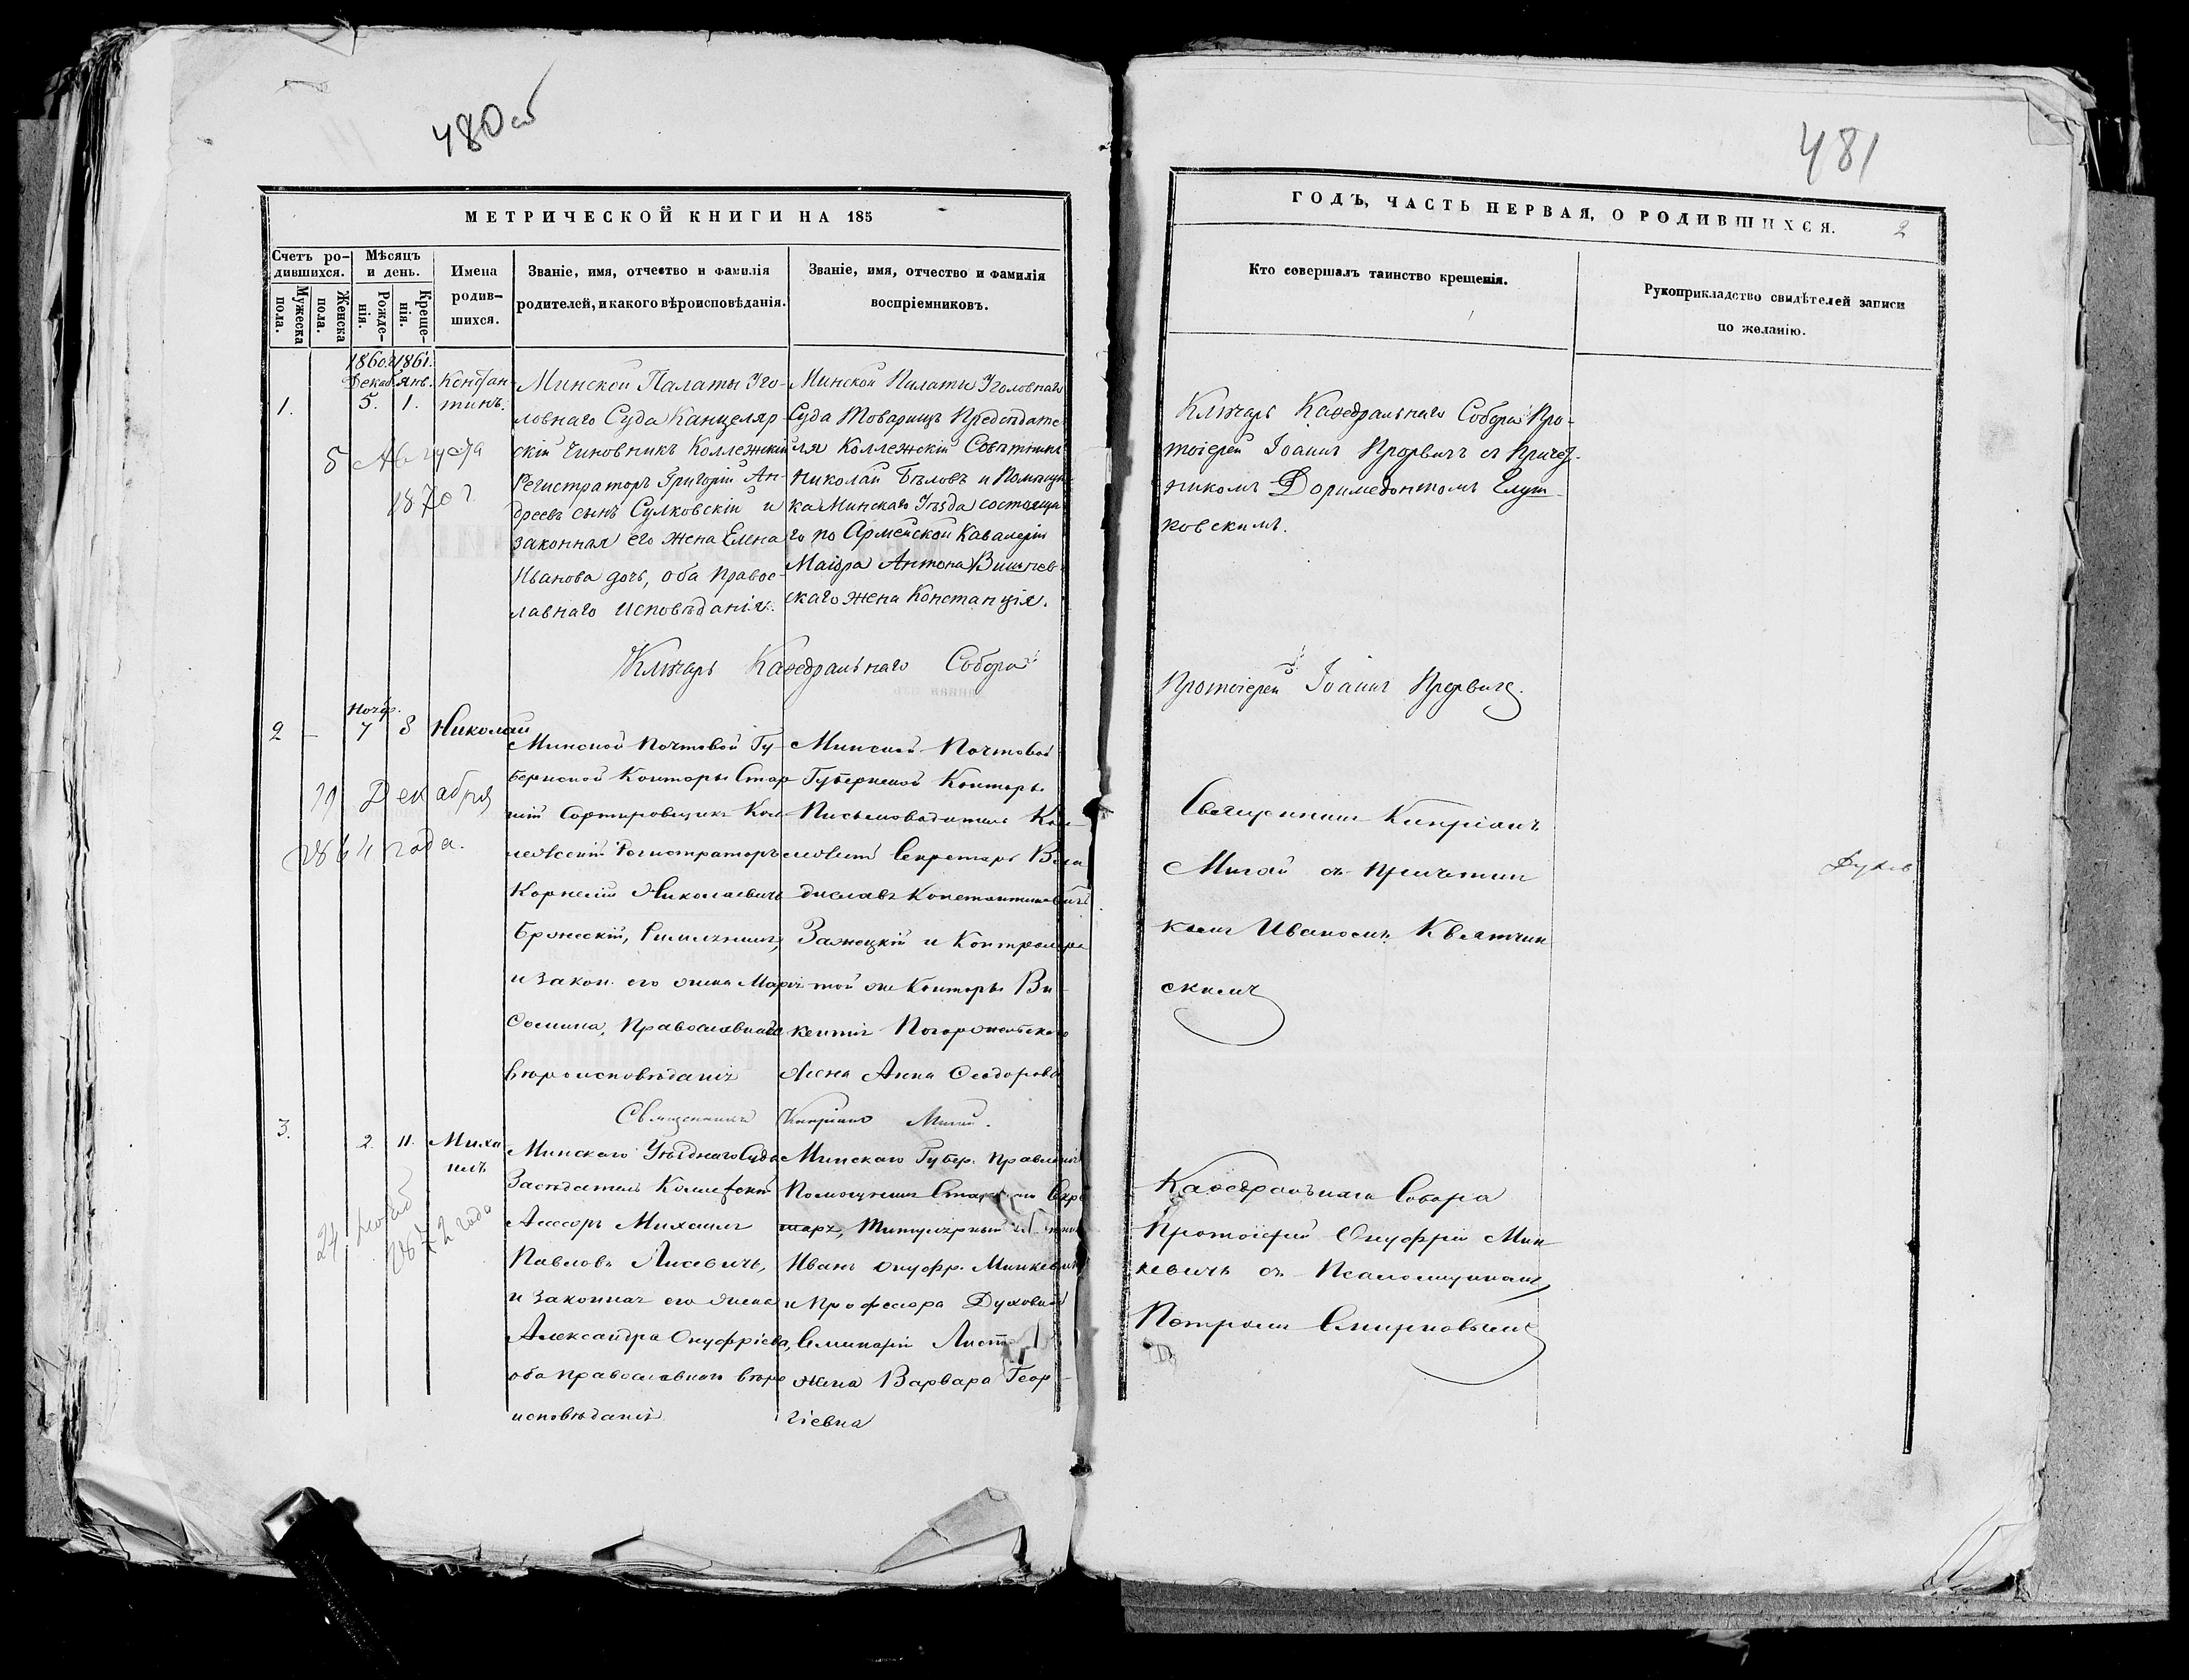 480 об
МЕТРИЧЕСКОЙ КНИГИ НА 185
Счетъ ро-
дившихся.
Мѣсяцъ
и день.
Мужеска
пола.
Женска
пола.
Рожде-
нія.
Креще-
нія.
Имена
родив-
шихся.
Званіе, имя, отчество и фамилія
родителей, и какого вѣроисповѣданія.
Званіе, имя, отчество и фамилія
воспріемниковъ.
1.
1860г.
Декаб.
5.
1861.
Янв.
1.
Констан-
тинъ.
5 Августа
1870 г
Минской Палаты Уго-
ловнаго Суда Канцеляр
скій Чиновникъ Коллежскій
Регистраторъ Григорій Ан-
дреевъ сынъ Сулковскій и
законная его жена Елена
Иванова дочь, оба Правос-
лавнаго исповѣданія.
Минской Палаты Уголовнаго
Суда Товарищъ Предсѣдате
ля Коллежскій Совѣтникъ
Николай Бѣловъ и Помѣщи-
ка Минскаго Уѣзда состояща
го по Армейской Кавалеріи
Маіора Антона
скаго жена Констанція.
Ключарь Каѳедральнаго Собора
2
–
Нояб.
7
8
Николай
19 Декабря
1864 года.
Минской Почтовой Гу-
бернской Конторы Стар
шій Сортировщикъ Кол
лежскій Регистраторъ
Корнелій Николаевичъ
Бржескій, Римлянинъ,
и закон. его жена Марія
Сомина, Православнаго
вѣроисповѣданія
Минской Почтовой
Губернской Конторы
Письмоводитель Кол-
лежскій Секретарь Вла
диславъ Константиновичъ
Зажецкій и Контролера
той же Конторы Ви-
кентія Погоржельскаго
Жена Анна Ѳеодорова
Священникъ Кипріанъ Мигай.
3.
2.
11.
Миха
илъ
24
1872 года
Минскаго Уѣзднаго Суда
Засѣдатель Коллежскій
Асессоръ Михаилъ
Павловъ Лисевичъ,
и законная его жена
Александра Онуфріева,
оба православнаго вѣро
исповѣданія
Минскаго Губер. Правленія
Помощникъ Секре
таря, Титулярный
Иванъ Онуфр. Минкевичъ
и Профессора Духовной
Семинаріи
жена Варвара Геор-
гіевна
481
ГОДЪ, ЧАСТЬ ПЕРВАЯ, О РОДИВШИХСЯ.
2
Кто совершалъ таинство крещенія.
Рукоприкладство свидѣтелей записи
по желанію.
Ключарь Каѳедральнаго Собора Про-
тоіерей Іоаннъ Проровичъ съ Причет-
никомъ Доримедонтомъ
ковскимъ.
Протоіерей Іоаннъ
Священникъ Кипріанъ
Мигай съ причетни
комъ Иваномъ Квятчин
скимъ
Каѳедральнаго Собора
Протоіерей Онуфрій Мин-
кевичъ съ Псаломщикомъ
Петромъ Смирновымъ